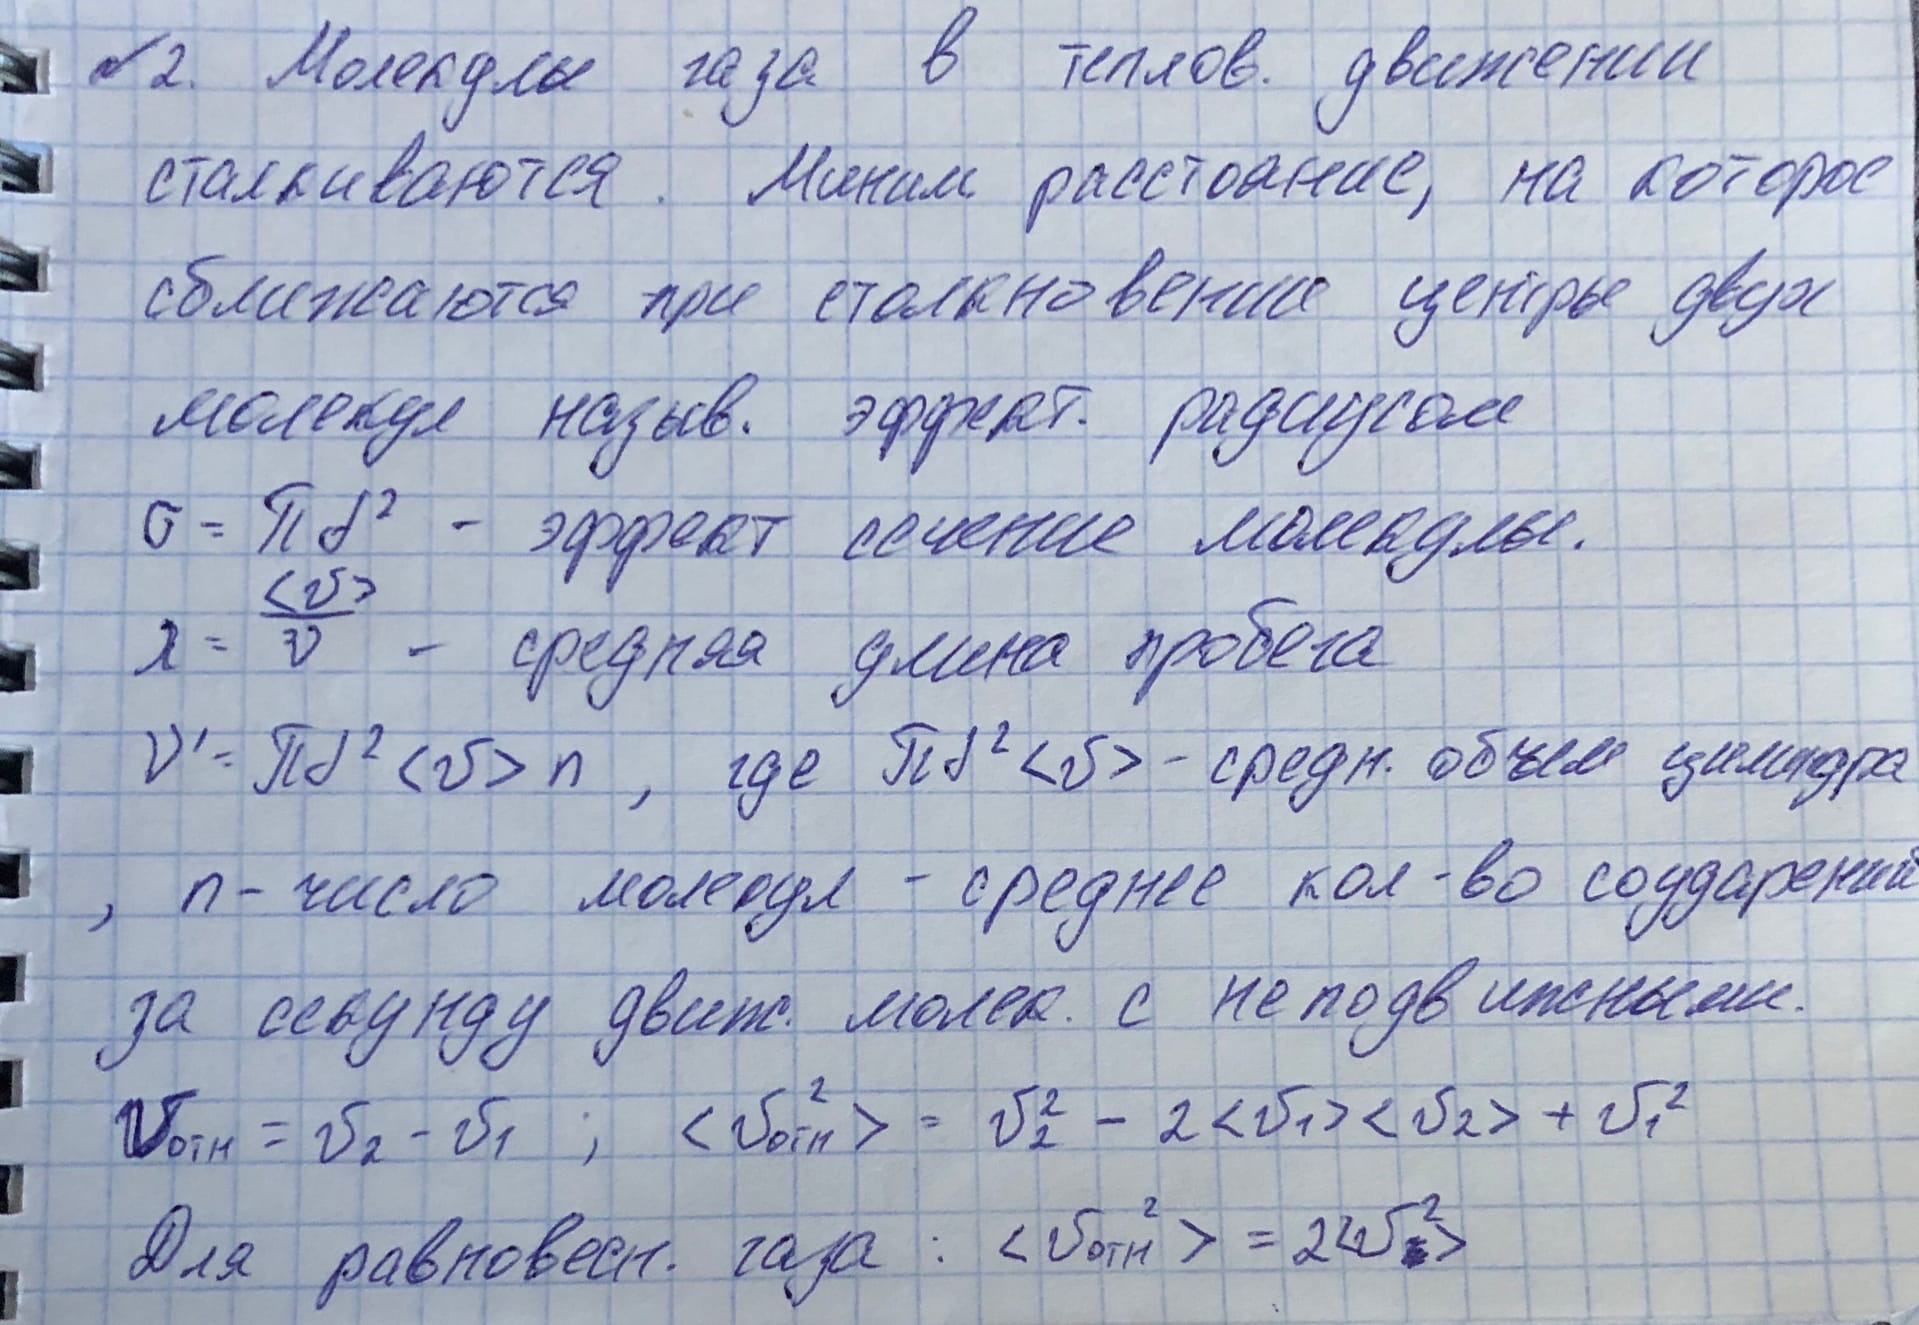 №2. Молекулы газа в теплов. движении
сталкиваются. Миним расстояние, на которое
сближаются при столкновении центры двух
молекул назыв. эффект. радиусом
σ = πd² - эффект сечение молекулы.
λ = <v>/ν - средняя длина пробега
ν' = πd²<v>n, где πd²<v> - средн. объем цилиндра
, n - число молекул - среднее кол-во соударений
за секунду движ. молек. с неподвижными.
vотн = v₂ - v₁ ; <vотн²> = v₂² - 2<v₁><v₂> + v₁²
Для равновесн. газа : <vотн²> = 2<v²>